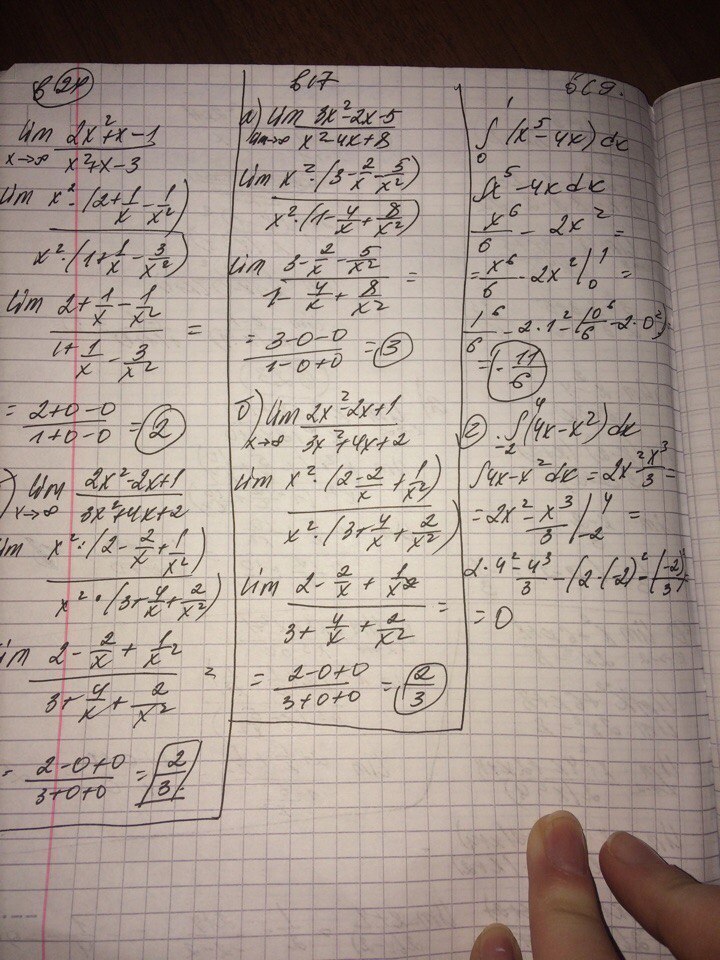 в 21
lim 2x²+x-1 / x²+x-3
x→∞
lim x²·(2+1/x-1/x²) / x²·(1+1/x-3/x²)
lim 2+1/x-1/x² / 1+1/x-3/x² =
= 2+0-0 / 1+0-0 = 2
lim 2x²-2x+1 / 3x²+4x+2
x→∞
x²·(2-2/x+1/x²) / x²·(3+4/x+2/x²)
2-2/x+1/x² / 3+4/x+2/x² =
= 2-0+0 / 3+0+0 = 2/3
в17
а) lim 3x²-2x-5 / x²-4x+8
lim x²·(3-2/x-5/x²) / x²·(1-4/x+8/x²)
lim 3-2/x-5/x² / 1-4/x+8/x² =
= 3-0-0 / 1-0+0 = 3
б) lim 2x²-2x+1 / 3x²+4x+2
x→∞
lim x²·(2-2/x+1/x²) / x²·(3+4/x+2/x²)
lim 2-2/x+1/x² / 3+4/x+2/x² =
= 2-0+0 / 3+0+0 = 2/3
∫₀¹ (x⁵-4x)dx
∫x⁵-4x dx
x⁶/6 - 2x² =
= x⁶/6 - 2x² |₀¹ =
1⁶/6 - 2·1² - (0⁶/6 - 2·0²) =
= -11/6
2 ∫₋₂⁴ (4x-x²)dx
∫4x-x² dx = 2x² x³/3 =
= 2x² - x³/3 |₋₂⁴ =
2·4² - 4³/3 - (2·(-2)² - (-2)³/3)
= 0